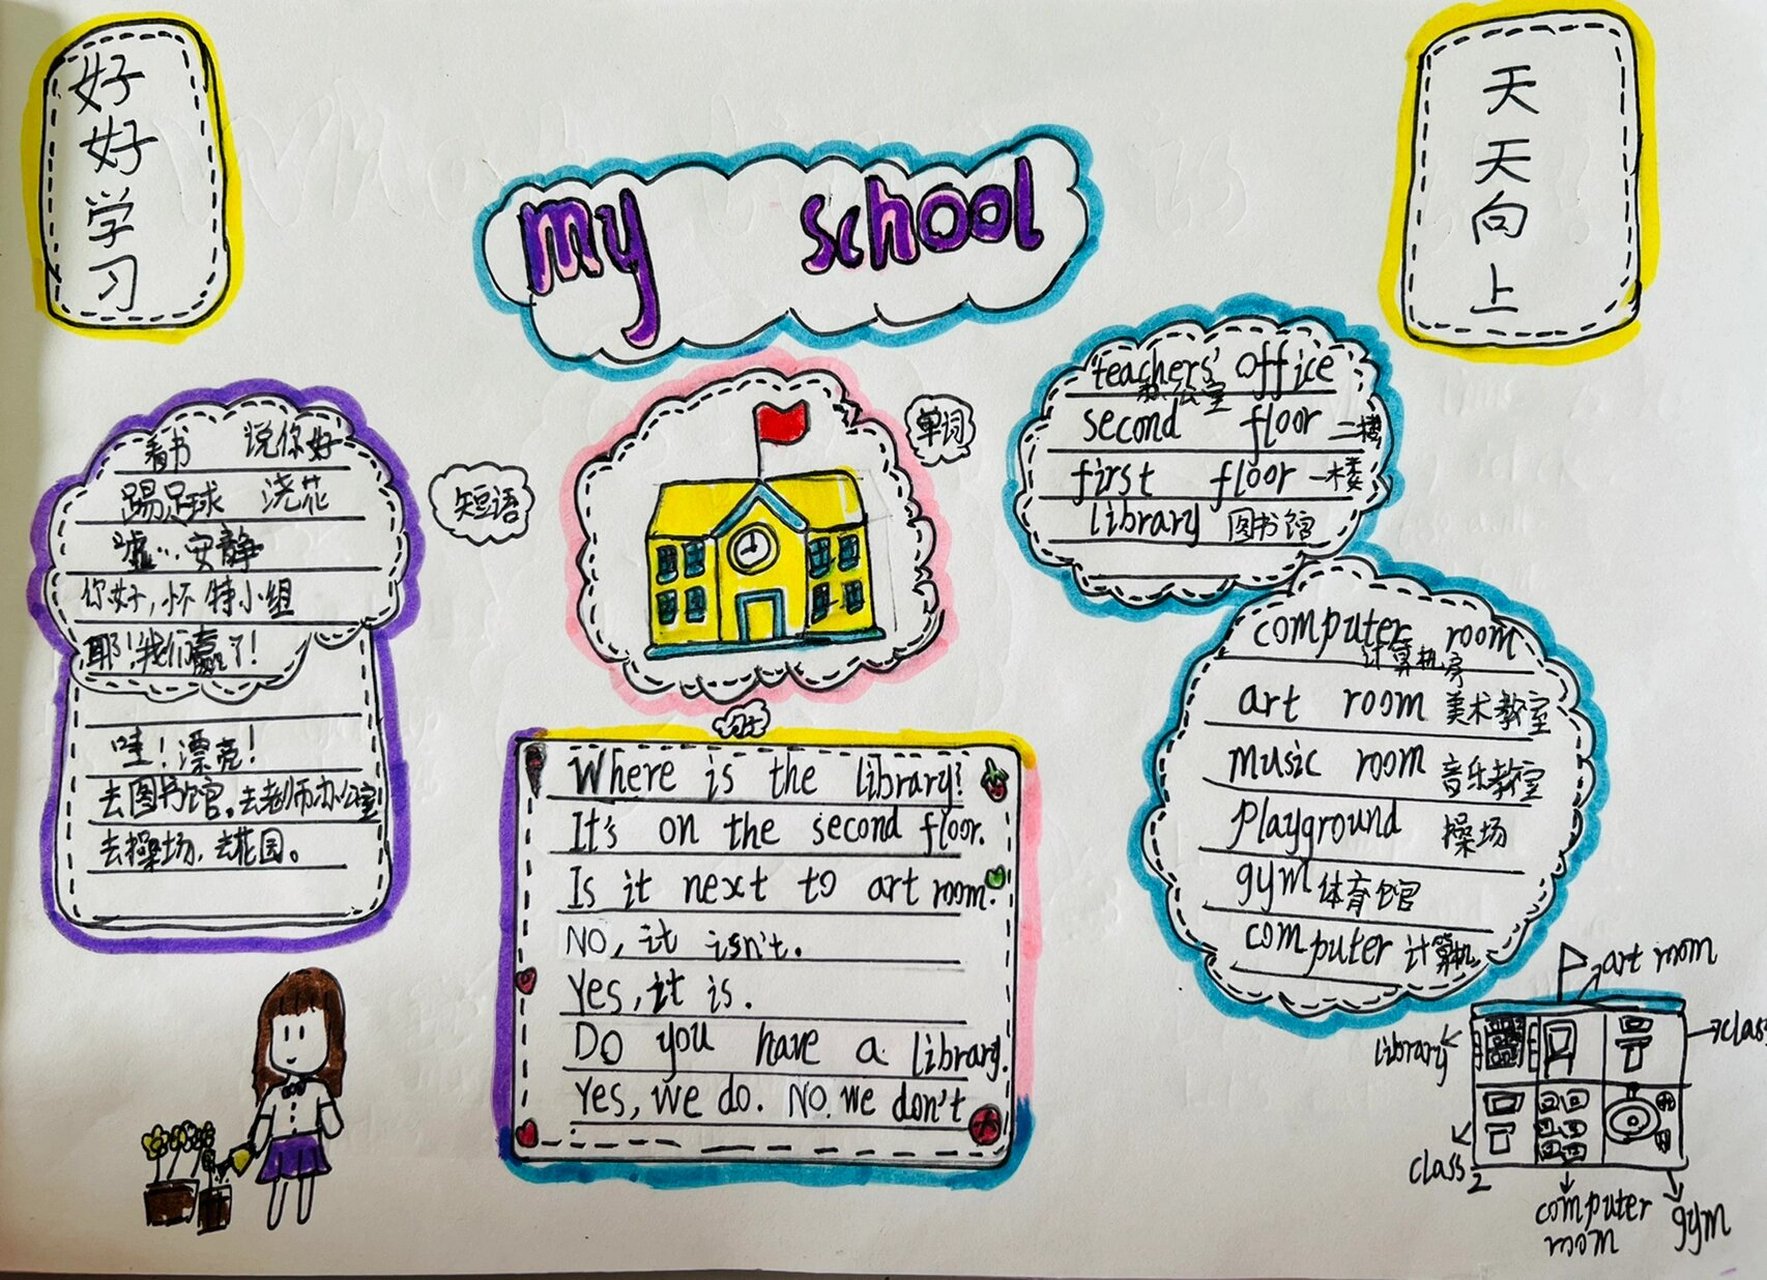 好好学习
my school
天天向上
短语
看书 说你好
踢足球 浇花
嘘…安静
你好,怀特小组
耶!我们赢了!
哇!漂亮!
去图书馆。去老师办公室
去操场,去花园。
单词
teachers' office
办公室
second floor 二楼
first floor 一楼
library 图书馆
computer room
计算机房
art room 美术教室
music room 音乐教室
playground 操场
gym 体育馆
computer 计算机
句子
Where is the library?
It's on the second floor.
Is it next to art room?
NO, it isn't.
Yes, it is.
Do you have a library.
Yes, we do. No. we don't
art room
library
class
class 2
computer room
gym